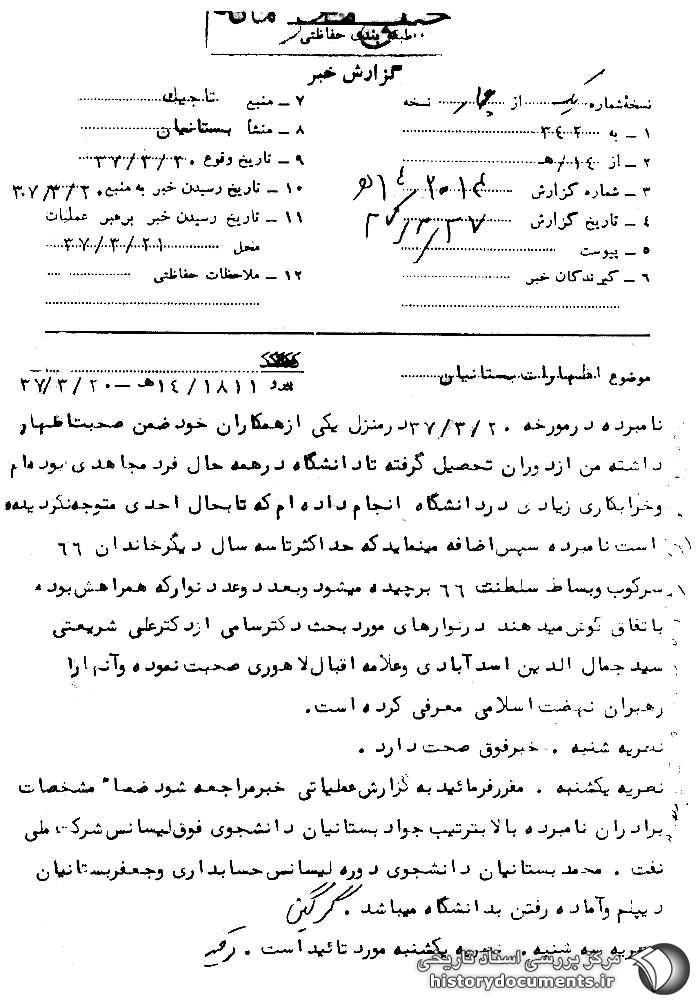 طبقه بندی حفاظتی
گزارش خبر
نسخهٔ شماره یک از چهار نسخه
۱ ــ به ۳۴۲
۲ ــ از ۱۴/هـ
۳ ــ شماره گزارش
۴ ــ تاریخ گزارش
۵ ــ پیوست
۶ ــ گیرندگان خبر
۷ ــ منبع تاجیک
۸ ــ منشأ بستانیان
۹ ــ تاریخ وقوع ۳۷/۳/۲۰
۱۰ ــ تاریخ رسیدن خبر به منبع ۳۷/۳/۲۰
۱۱ ــ تاریخ رسیدن خبر برهبر عملیات
محل ۳۷/۳/۲۱
۱۲ ــ ملاحظات حفاظتی
موضوع اظهارات بستانیان
پیرو ۱۴/۱۸۱۱هـ ــ ۳۷/۳/۲۰
نامبرده درمورخه ۳۷/۳/۲۰ درمنزل یکی ازهمکاران خود ضمن صحبت اظهار
داشته من ازدوران تحصیل گرفته تا دانشگاه درهمه حال فرد مجاهدی بوده‌ام
وخرابکاری زیادی دردانشگاه انجام داده‌ام که تابحال احدی متوجه نگردیده
است نامبرده سپس اضافه مینماید که حداکثر تا سه سال دیگر خاندان ۶۶
سرکوب وبساط سلطنت ۶۶ برچیده میشود وبعد دوعدد نوار که همراهش بوده
باتفاق گوش میدهند درنوارهای مورد بحث دکتر سامی از دکترعلی شریعتی
سید جمال الدین اسدآبادی وعلامه اقبال لاهوری صحبت نموده وآنها را
رهبران نهضت اسلامی معرفی کرده است.
نظریه شنبه . خبرفوق صحت دارد .
نظریه یکشنبه . مقررفرمائید به گزارش عملیاتی خبر مراجعه شود ضماً مشخصات
برادران نامبرده بالا بترتیب جواد بستانیان دانشجوی فوق لیسانس شرکت ملی
نفت . محمد بستانیان دانشجوی دوره لیسانس حسابداری وجعفر بستانیان
دیپلم وآماده رفتن بدانشگاه میباشد .
نظریه سه شنبه . نظریه یکشنبه مورد تائید است .
مرکز بررسی اسناد تاریخی
historydocuments.ir